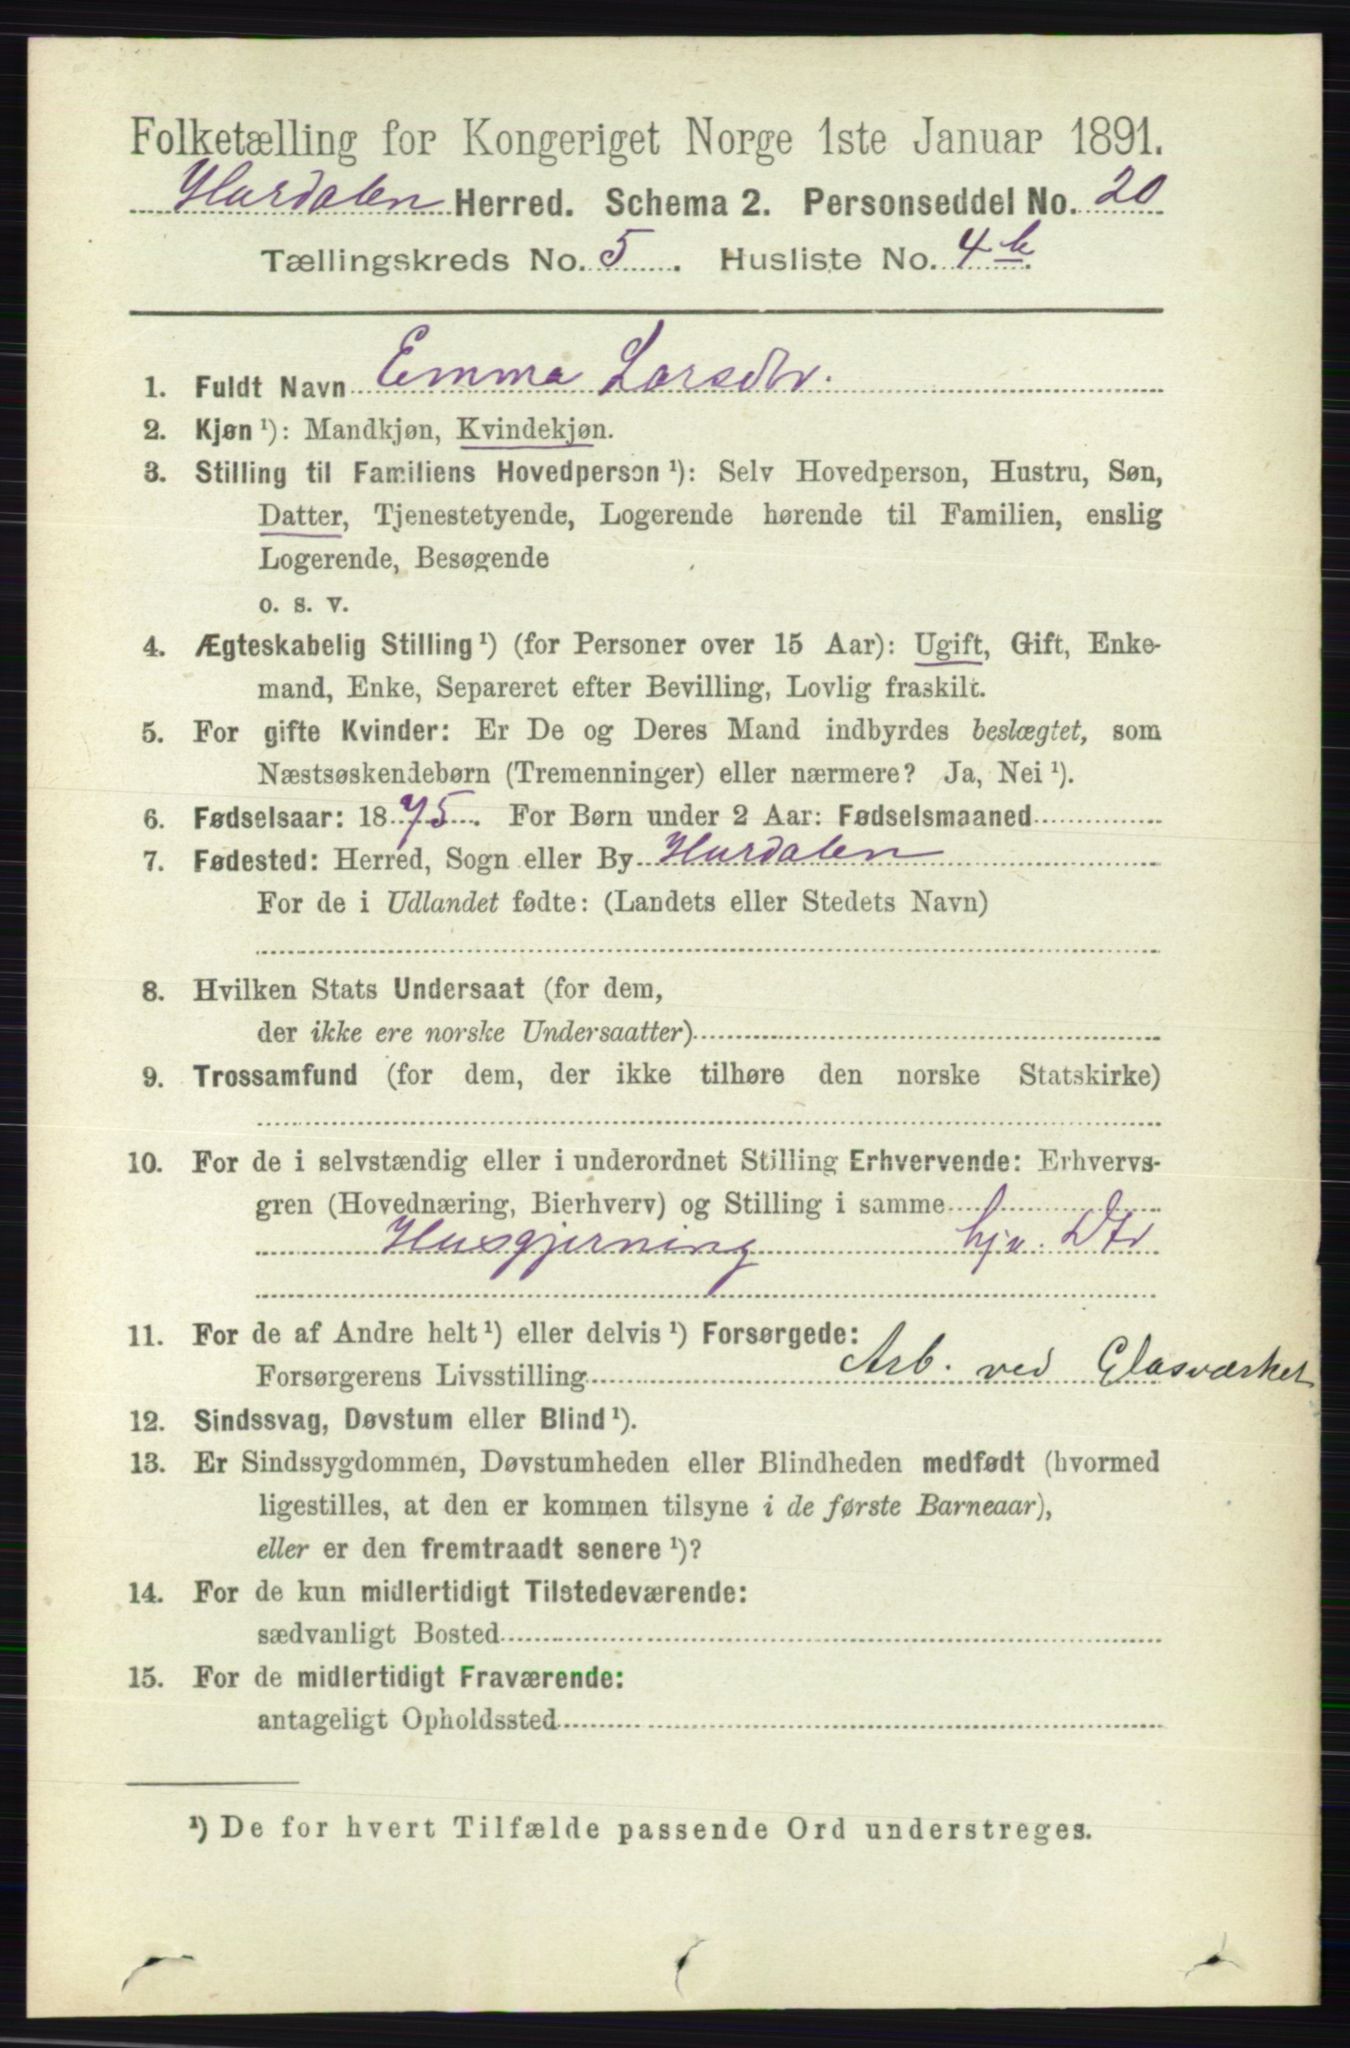 Folketælling for Kongeriget Norge 1ste Januar 1891.
Hurdalen Herred. Schema 2. Personseddel No. 20
Tællingskreds No. 5. Husliste No. 4 b.
1. Fuldt Navn Emma Larsdtr.
2. Kjøn ¹): Mandkjøn, Kvindekjøn.
3. Stilling til Familiens Hovedperson ¹): Selv Hovedperson, Hustru, Søn,
Datter, Tjenestetyende, Logerende hørende til Familien, enslig
Logerende, Besøgende
o. s. v.
4. Ægteskabelig Stilling ¹) (for Personer over 15 Aar): Ugift, Gift, Enke-
mand, Enke, Separeret efter Bevilling, Lovlig fraskilt.
5. For gifte Kvinder: Er De og Deres Mand indbyrdes beslægtet, som
Næstsøskendebørn (Tremenninger) eller nærmere? Ja, Nei ¹).
6. Fødselsaar: 1875. For Børn under 2 Aar: Fødselsmaaned
7. Fødested: Herred, Sogn eller By Hurdalen
For de i Udlandet fødte: (Landets eller Stedets Navn)
8. Hvilken Stats Undersaat (for dem,
der ikke ere norske Undersaatter)
9. Trossamfund (for dem, der ikke tilhøre den norske Statskirke)
10. For de i selvstændig eller i underordnet Stilling Erhvervende: Erhvervs-
gren (Hovednæring, Bierhverv) og Stilling i samme
Husgjerning hjv. Dtr
11. For de af Andre helt ¹) eller delvis ¹) Forsørgede:
Forsørgerens Livsstilling Arb. ved Glasværket
12. Sindssvag, Døvstum eller Blind ¹).
13. Er Sindssygdommen, Døvstumheden eller Blindheden medfødt (hvormed
ligestilles, at den er kommen tilsyne i de første Barneaar),
eller er den fremtraadt senere ¹)?
14. For de kun midlertidigt Tilstedeværende:
sædvanligt Bosted
15. For de midlertidigt Fraværende:
antageligt Opholdssted
¹) De for hvert Tilfælde passende Ord understreges.